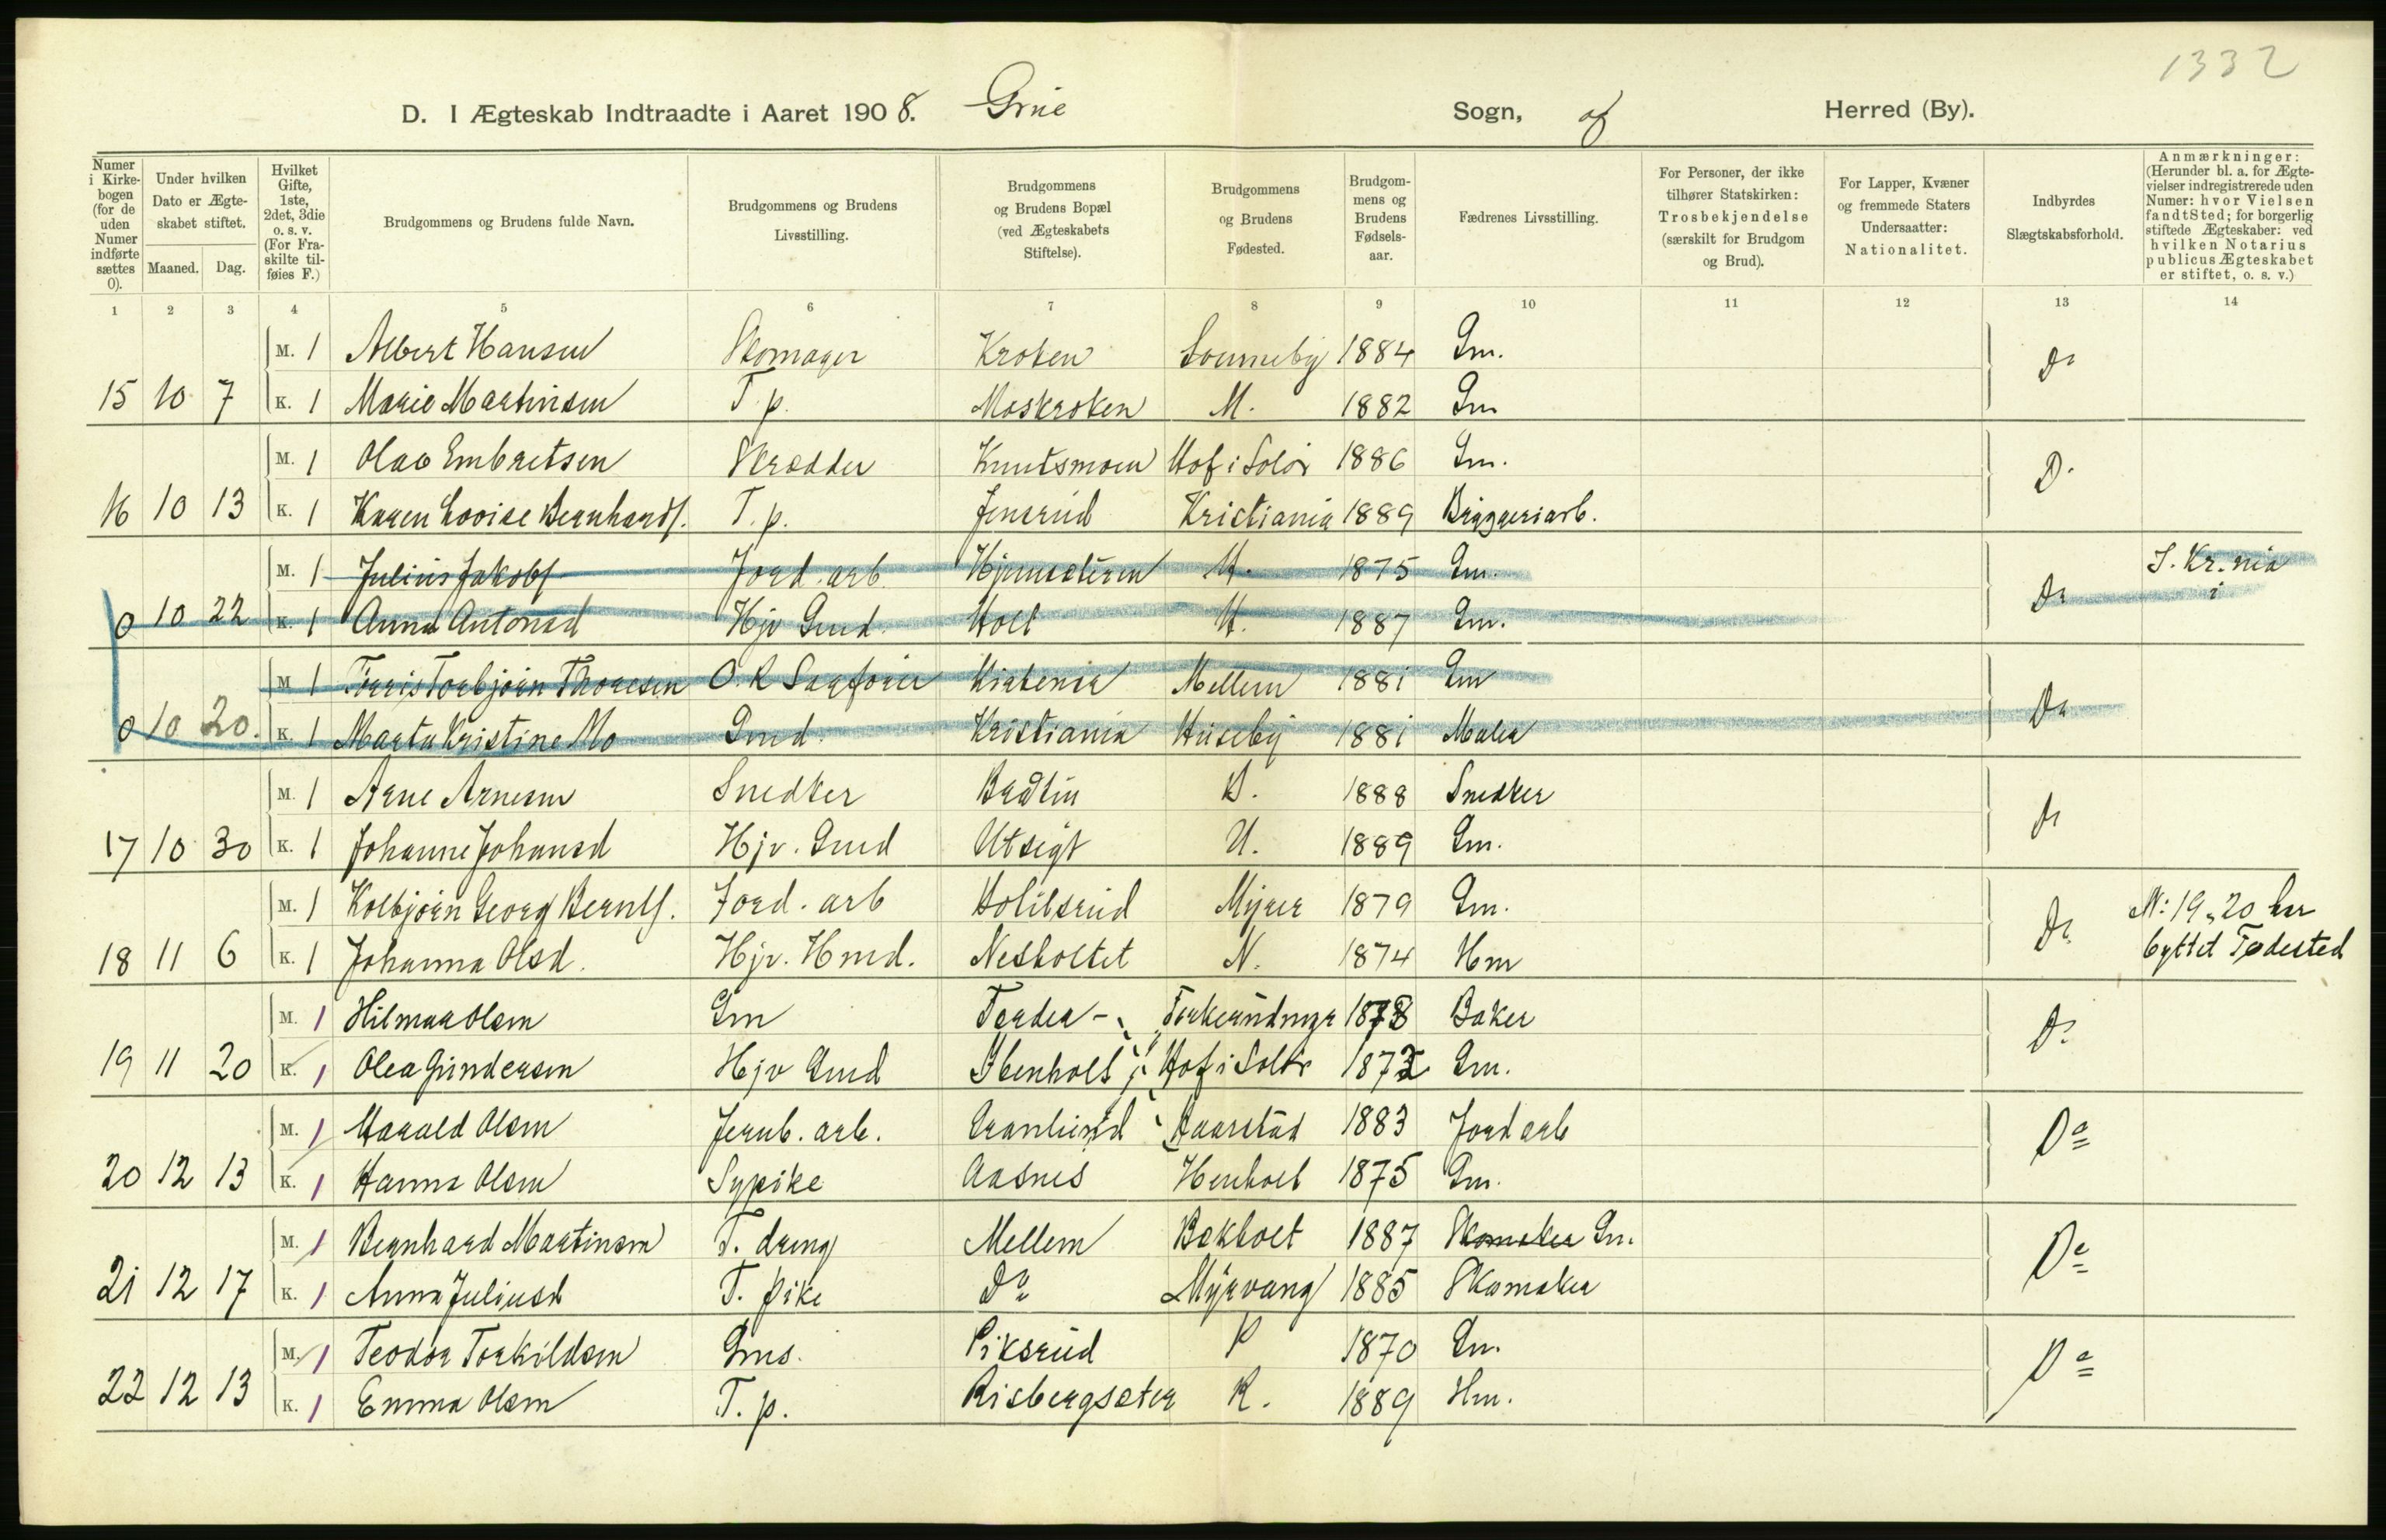 1332
D. I Ægteskab Indtraadte i Aaret 1908. Grue Sogn, af Herred (By).
Numer i Kirkebogen (for de uden Numer indførte sættes 0). Under hvilken Dato er Ægteskabet stiftet. Maaned. Dag. Hvilket Gifte, 1ste, 2det, 3die o. s. v. (For Fraskilte tilføies F.) Brudgommens og Brudens fulde Navn. Brudgommens og Brudens Livsstilling. Brudgommens og Brudens Bopæl (ved Ægteskabets Stiftelse). Brudgommens og Brudens Fødested. Brudgommens og Brudens Fødselsaar. Fædrenes Livsstilling. For Personer, der ikke tilhører Statskirken: Trosbekjendelse (særskilt for Brudgom og Brud). For Lapper, Kvæner og fremmede Staters Undersaatter: Nationalitet. Indbyrdes Slægtskabsforhold. Anmærkninger: (Herunder bl. a. for Ægtevielser indregistrerede uden Numer: hvor Vielsen fandt Sted; for borgerlig stiftede Ægteskaber: ved hvilken Notarius publicus Ægteskabet er stiftet, o. s. v.)
1 2 3 4 5 6 7 8 9 10 11 12 13 14
M. 1 Albert Hansen Skomager Kroken 1884 Gm.
15 10 7 K. 1 Marie Martinsen T. p. Moskroken M. 1882 Gm
M. 1 Olav Embretsen Skrædder Knutsmoen Hof i Solør 1886 Gm.
16 10 13 K. 1 Karen Lovise Bernhards. T. p. Jensrud Kristiania 1889 Bryggeriarb.
M. 1 Julius Jakobs. Jord. arb. 1875 Gm. I. Kr.nia
0 10 22 K. 1 Anna Antonsd Hjv Gmd. Holt H. 1887 Gm. i
M 1 Torris Torbjørn Thoresen Kristenia Mellem 1881 Gm
0 10 20. K. 1 Marta Kristine Mo Gmd. Kristiania Huseby 1881 Maler
M. 1 Arne Arnesen Snedker Bråten B. 1888 Snedker
17 10 30 K. 1 Johanne Johansd Hjv. Gmd Utsigt U. 1889 Gm.
M. 1 Kolbjørn Georg Bernts. Jord. arb Myrer 1879 Gm. N: 19 „ 20 har
18 11 6 K. 1 Johanna Olsd. Hjv. Hmd. Nesholtet N. 1874 Hm byttet Fødested
M. 1 Hilmar Olsen Gm 1878 Baker
19 11 20 K. 1 Olea Gundersen Hjv Gmd Ibenholt Hof i Solør 1872 Gm.
M. 1 Harald Olsen Jernb. arb. Granlund 1883 Jord arb
20 12 13 K. 1 Hanna Olsen Sypike Aasnes Henholt 1875 Gm.
M. 1 Bernhard Martinsen T. dreng Mellem Bakholt 1887 Skomaker Gm.
21 12 17 K. 1 Anna Juliusd T. pike Do Myrvang 1885 Skomaker Do
M. 1 Teodor Torkildsen Gms. Piksrud P 1870 Gm.
22 12 13 K. 1 Emma Olsen T. p. Risbergseter R. 1889 Hm. Do